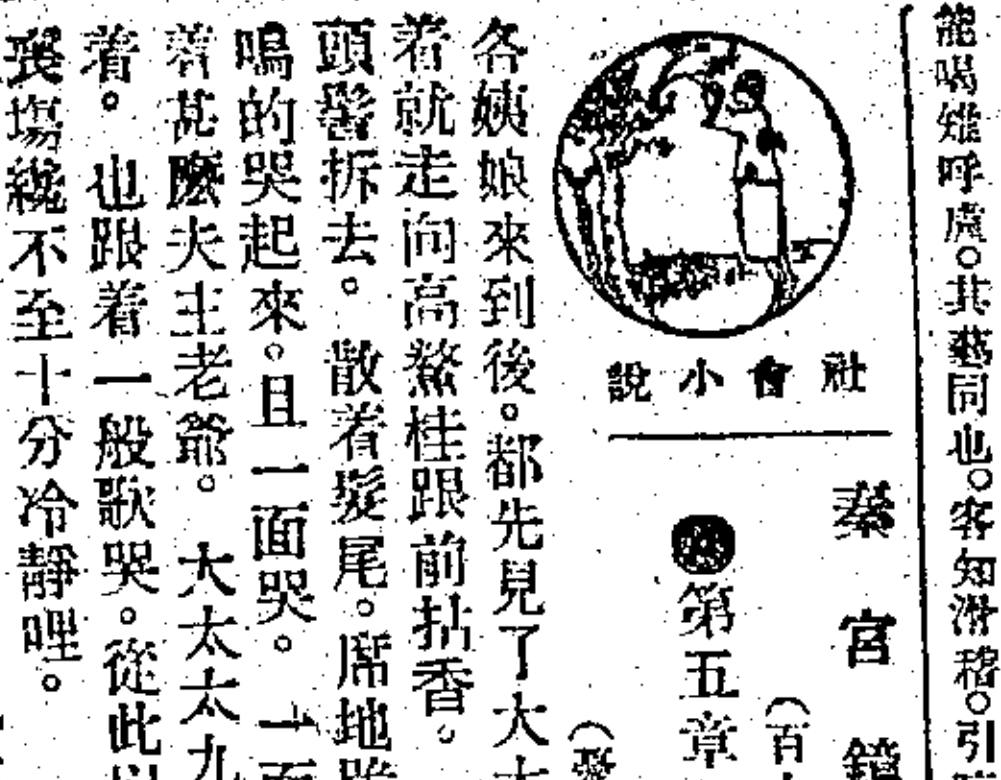 能喝雉呼盧。其藝同也。客知滑稽。引
社會小說
秦宮鏡
(百
第五章
(愛
各姨娘來到後。都先見了大太
着就走向高鰲桂跟前拈香。
頭髻拆去。散着髮尾。席地跪
嗚的哭起來。且一面哭。一面
着甚麽夫主老爺。大太太九
着。也跟着一般歌哭。從此以
喪塲纔不至十分冷靜哩。